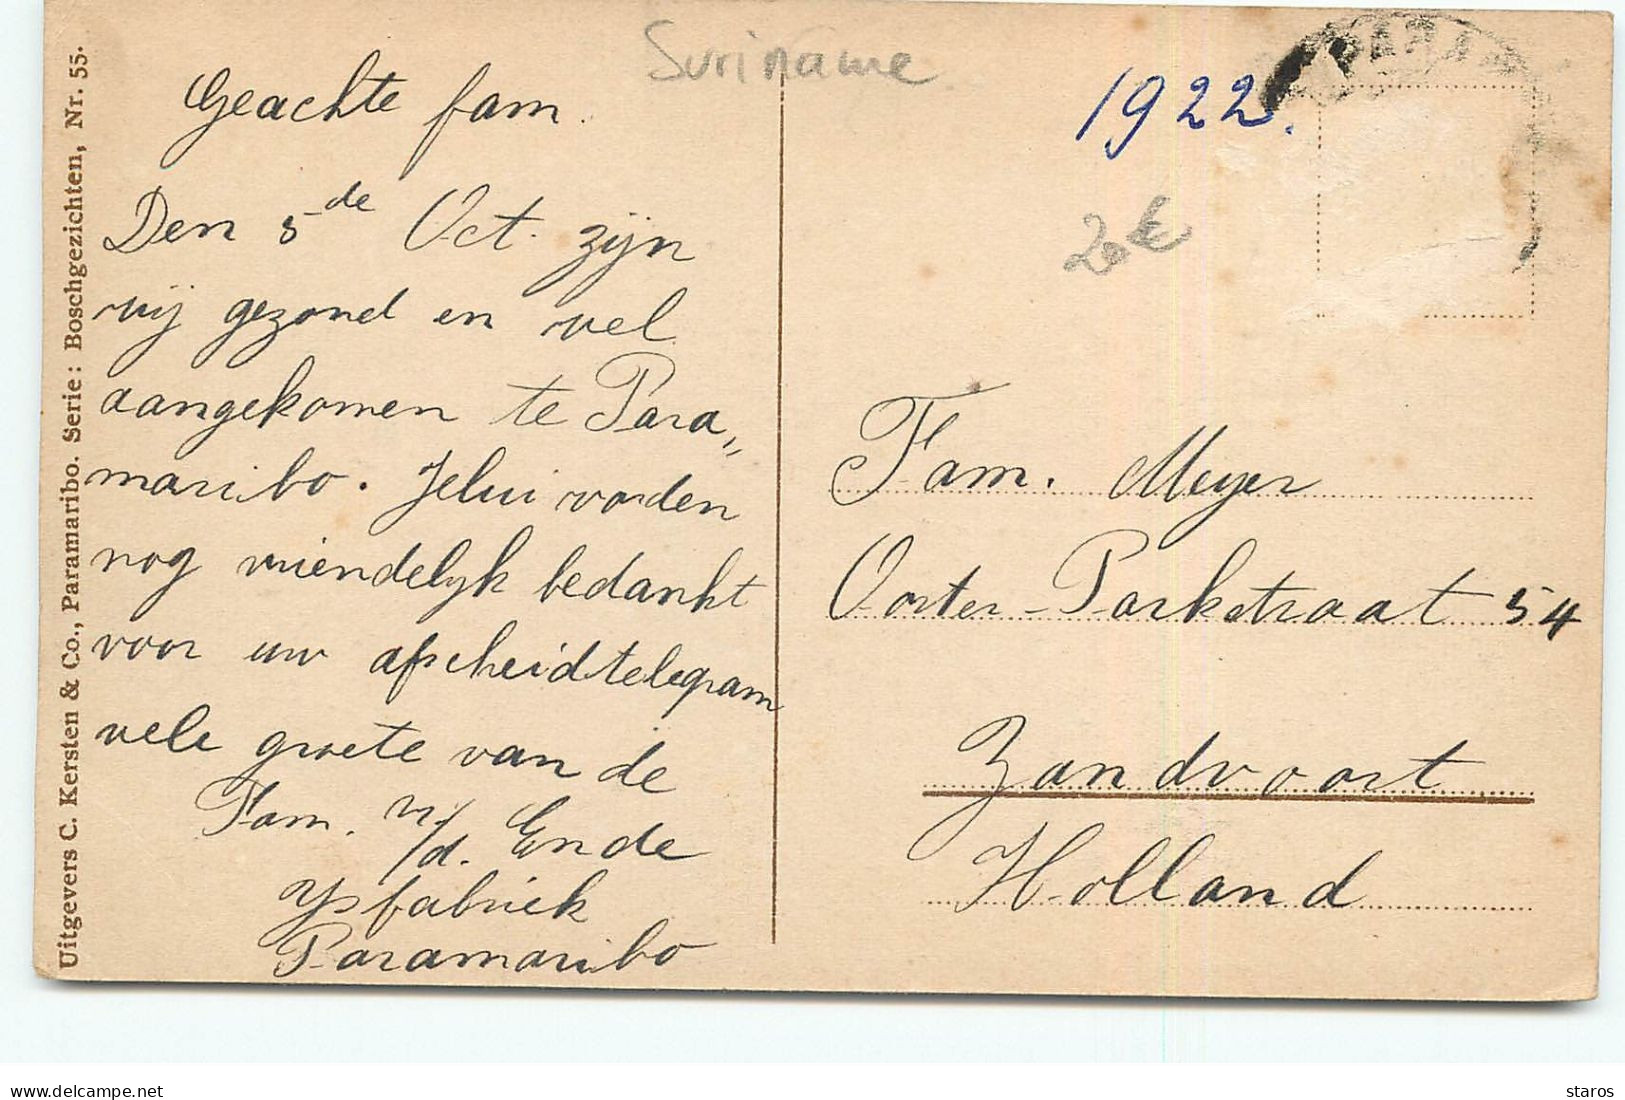 Suriname
1922.
20€
PARA
Uitgevers C. Kersten & Co., Paramaribo. Serie: Boschgezichten, Nr. 55.
Geachte fam.
Den 5de Oct. zijn
wij gezond en wel
aangekomen te Para„
maribo. Jelui worden
nog vriendelijk bedankt
voor uw afscheidtelegram
vele groete van de
Fam. v/d. Ende
Ysfabriek
Paramaribo
Fam. Meyer
Ooster-Parkstraat 54
Zandvoort
Holland
delcampe.net
staros